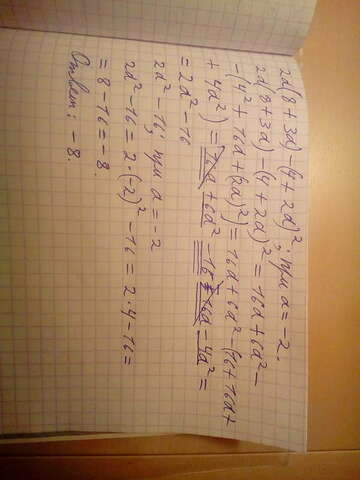 2a(8 + 3a) - (4 + 2a)²; при a = -2.
2a(8 + 3a) - (4 + 2a)² = 16a + 6a² -
- (4² + 16a + (2a)²) = 16a + 6a² - (16 + 16a +
+ 4a²) = 16a + 6a² - 16 - 16a - 4a² =
= 2a² - 16
2a² - 16; при a = -2
2a² - 16 = 2 · (-2)² - 16 = 2 · 4 - 16 =
= 8 - 16 = -8.
Ответ: -8.